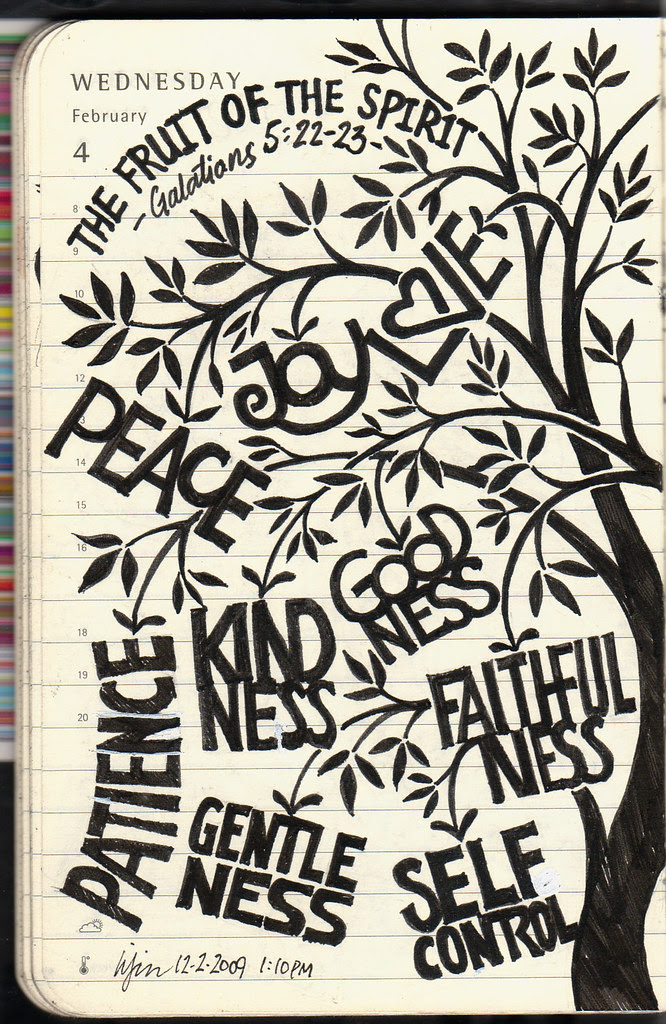 WEDNESDAY
February
4
THE FRUIT OF THE SPIRIT
- Galatians 5:22-23-
8
9
10
12
14
15
16
18
19
20
LOVE
JOY
PEACE
PATIENCE
KIND
NESS
GOOD
NESS
FAITHFUL
NESS
GENTLE
NESS
SELF
CONTROL
12-2-2009 1:10PM